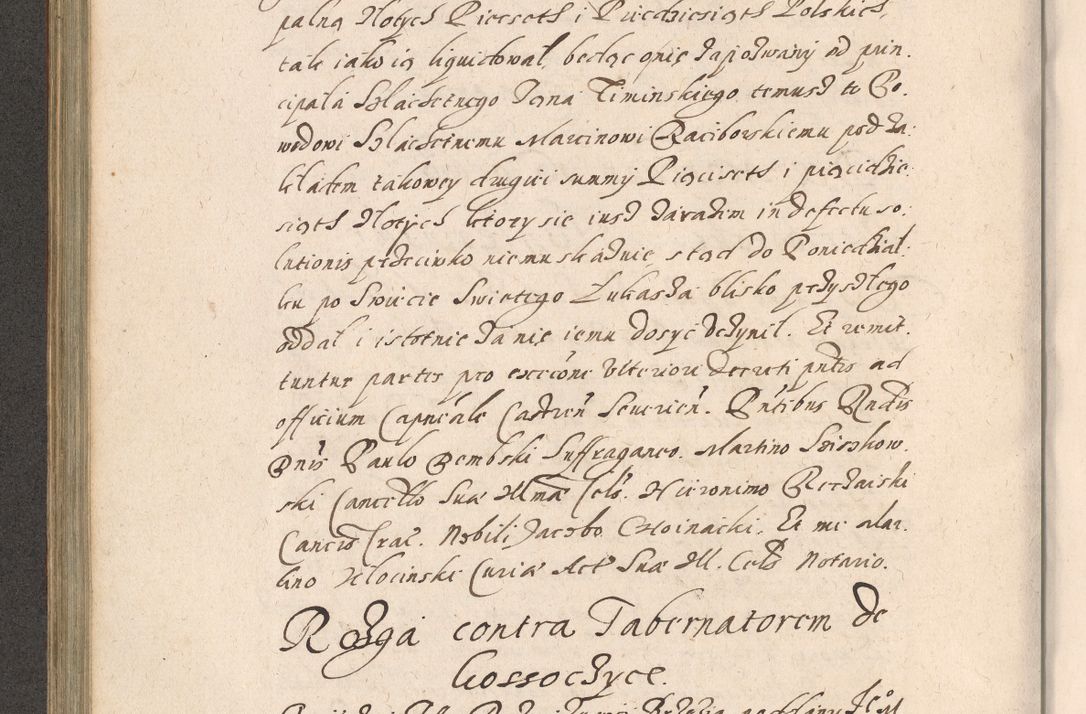 palną złotych Piecset i Piecdziesiąt Polskich,
tak iako ią liquidował, będąc o nię zapozwany od prin
cipala Szlachetnego Jana Timinskiego temusz to Po.
wodowi Szlachetnemu Marcinowi Raciborskiemu pod za:
kładem takowey drugiei summy Piąciset i piącidzie:
siąt złotych ktory sie iusz zarazem in defectu so:
lutionis przeciwko niemu skaznie, stąd do Poniedział:
ku po Swięcie Swiętego Łukasza blisko przyszłego
oddał i istotnie za nię iemu dosyć uczynił. Et remit:
tuntur partes pro exećone Ulteriori Decreti pntis ad
officium Capneale Castren Severien. Pntibus Rndis
Dnis Paulo Dembski Suffraganeo. Martino Szioskow
ski Cancello Suae Illmae Cels. Hieronimo Rerzaiski
Cancro Crac. Nobili Jacobo Choinacki. Et me Mar.
tino Kłocinski Curiae Act Suae Ill. Cels Notario.
Rozga contra Tabernatorem de
Kossoczyce.